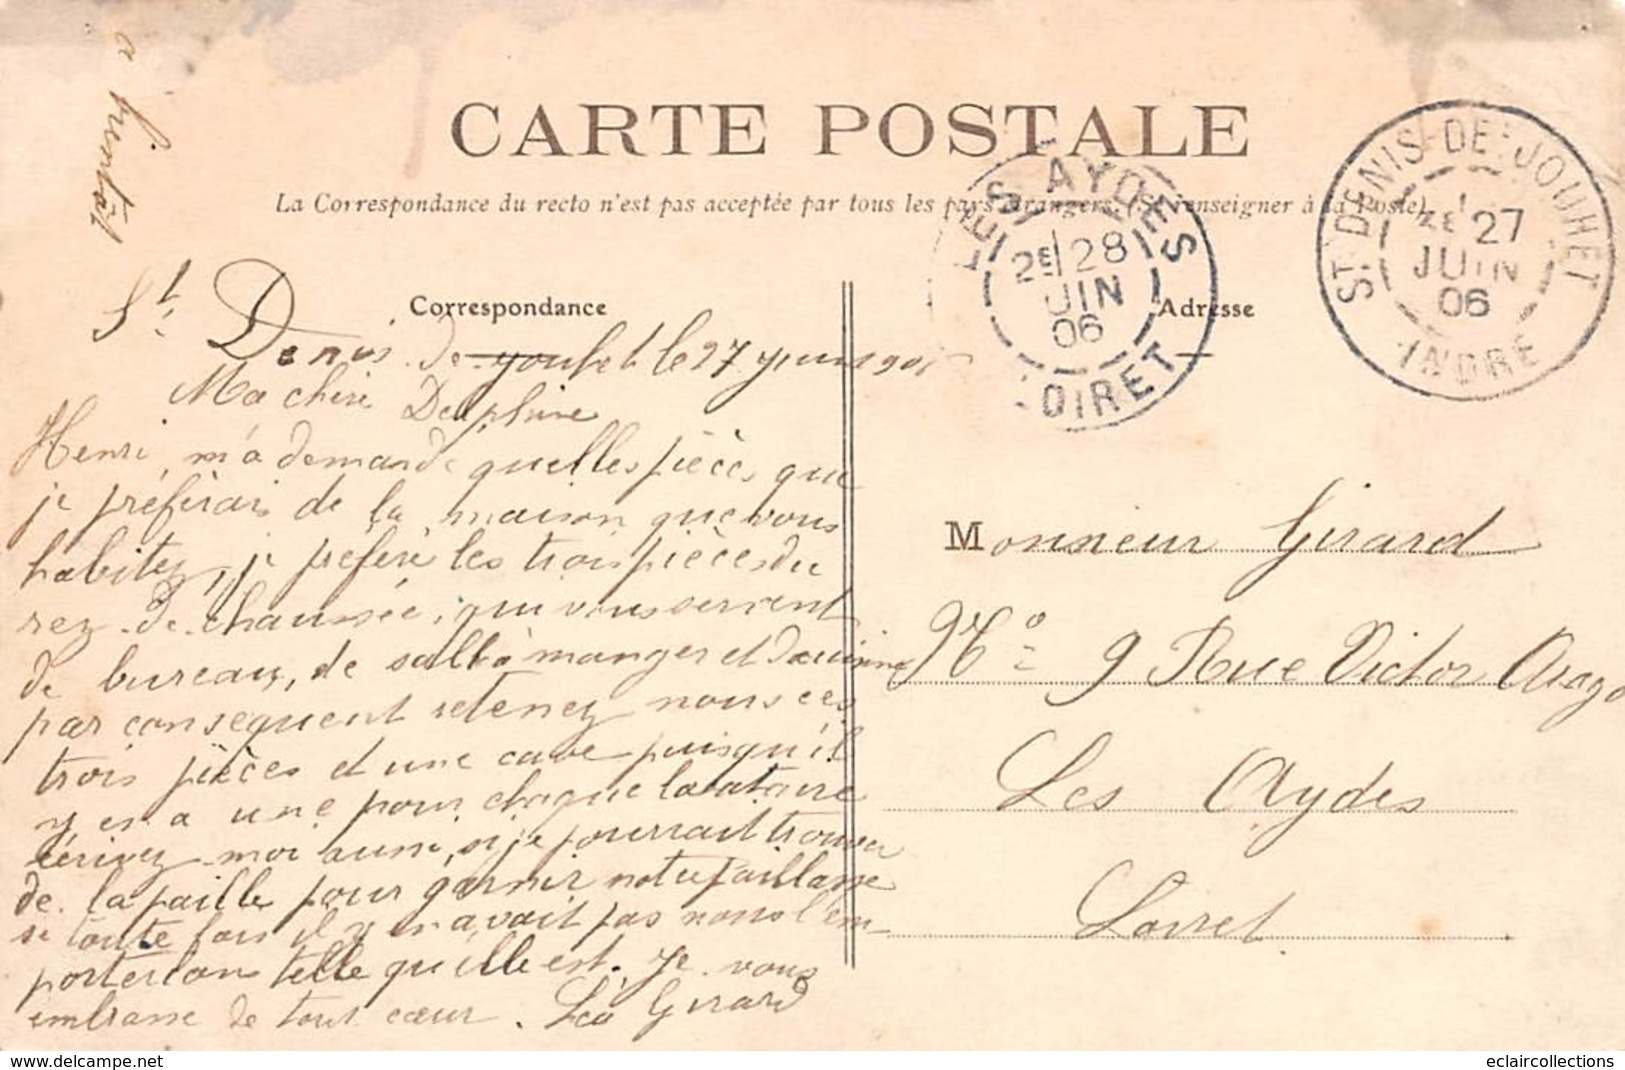 a bientôt
CARTE POSTALE
La Correspondance du recto n'est pas acceptée par tous les pays étrangers. (Se renseigner à la Poste).
Correspondance
Adresse
LES AYDES
2E 28
JUIN
06
LOIRET
ST DENIS-DE-JOUHET
27
JUIN
06
INDRE
St. Denis. de Jouhet le 27 juin 1906
Ma chère Delphine
Henri, m'a demandé quelles pièces que
je préférais de la maison que vous
habitez, je préfère les trois pièces du
rez-de-chaussée, qui vous servent
de bureau, de salle à manger et de cuisine
par conséquent retenez nous ces
trois pièces et une cave puisqu'il
y en a une pour chaque locataire
écrivez-moi aussi, si je pourrait trouver
de la paille pour garnir notre paillasse
si toute fois il y en avait pas nous l'em-
porterions telle qu'elle est. Je vous
embrasse de tout cœur. Léo Girard
Monsieur Girard
No 9 Rue Victor Arago
Les Aydes
Loiret
www.delcampe.net
eclaircollections